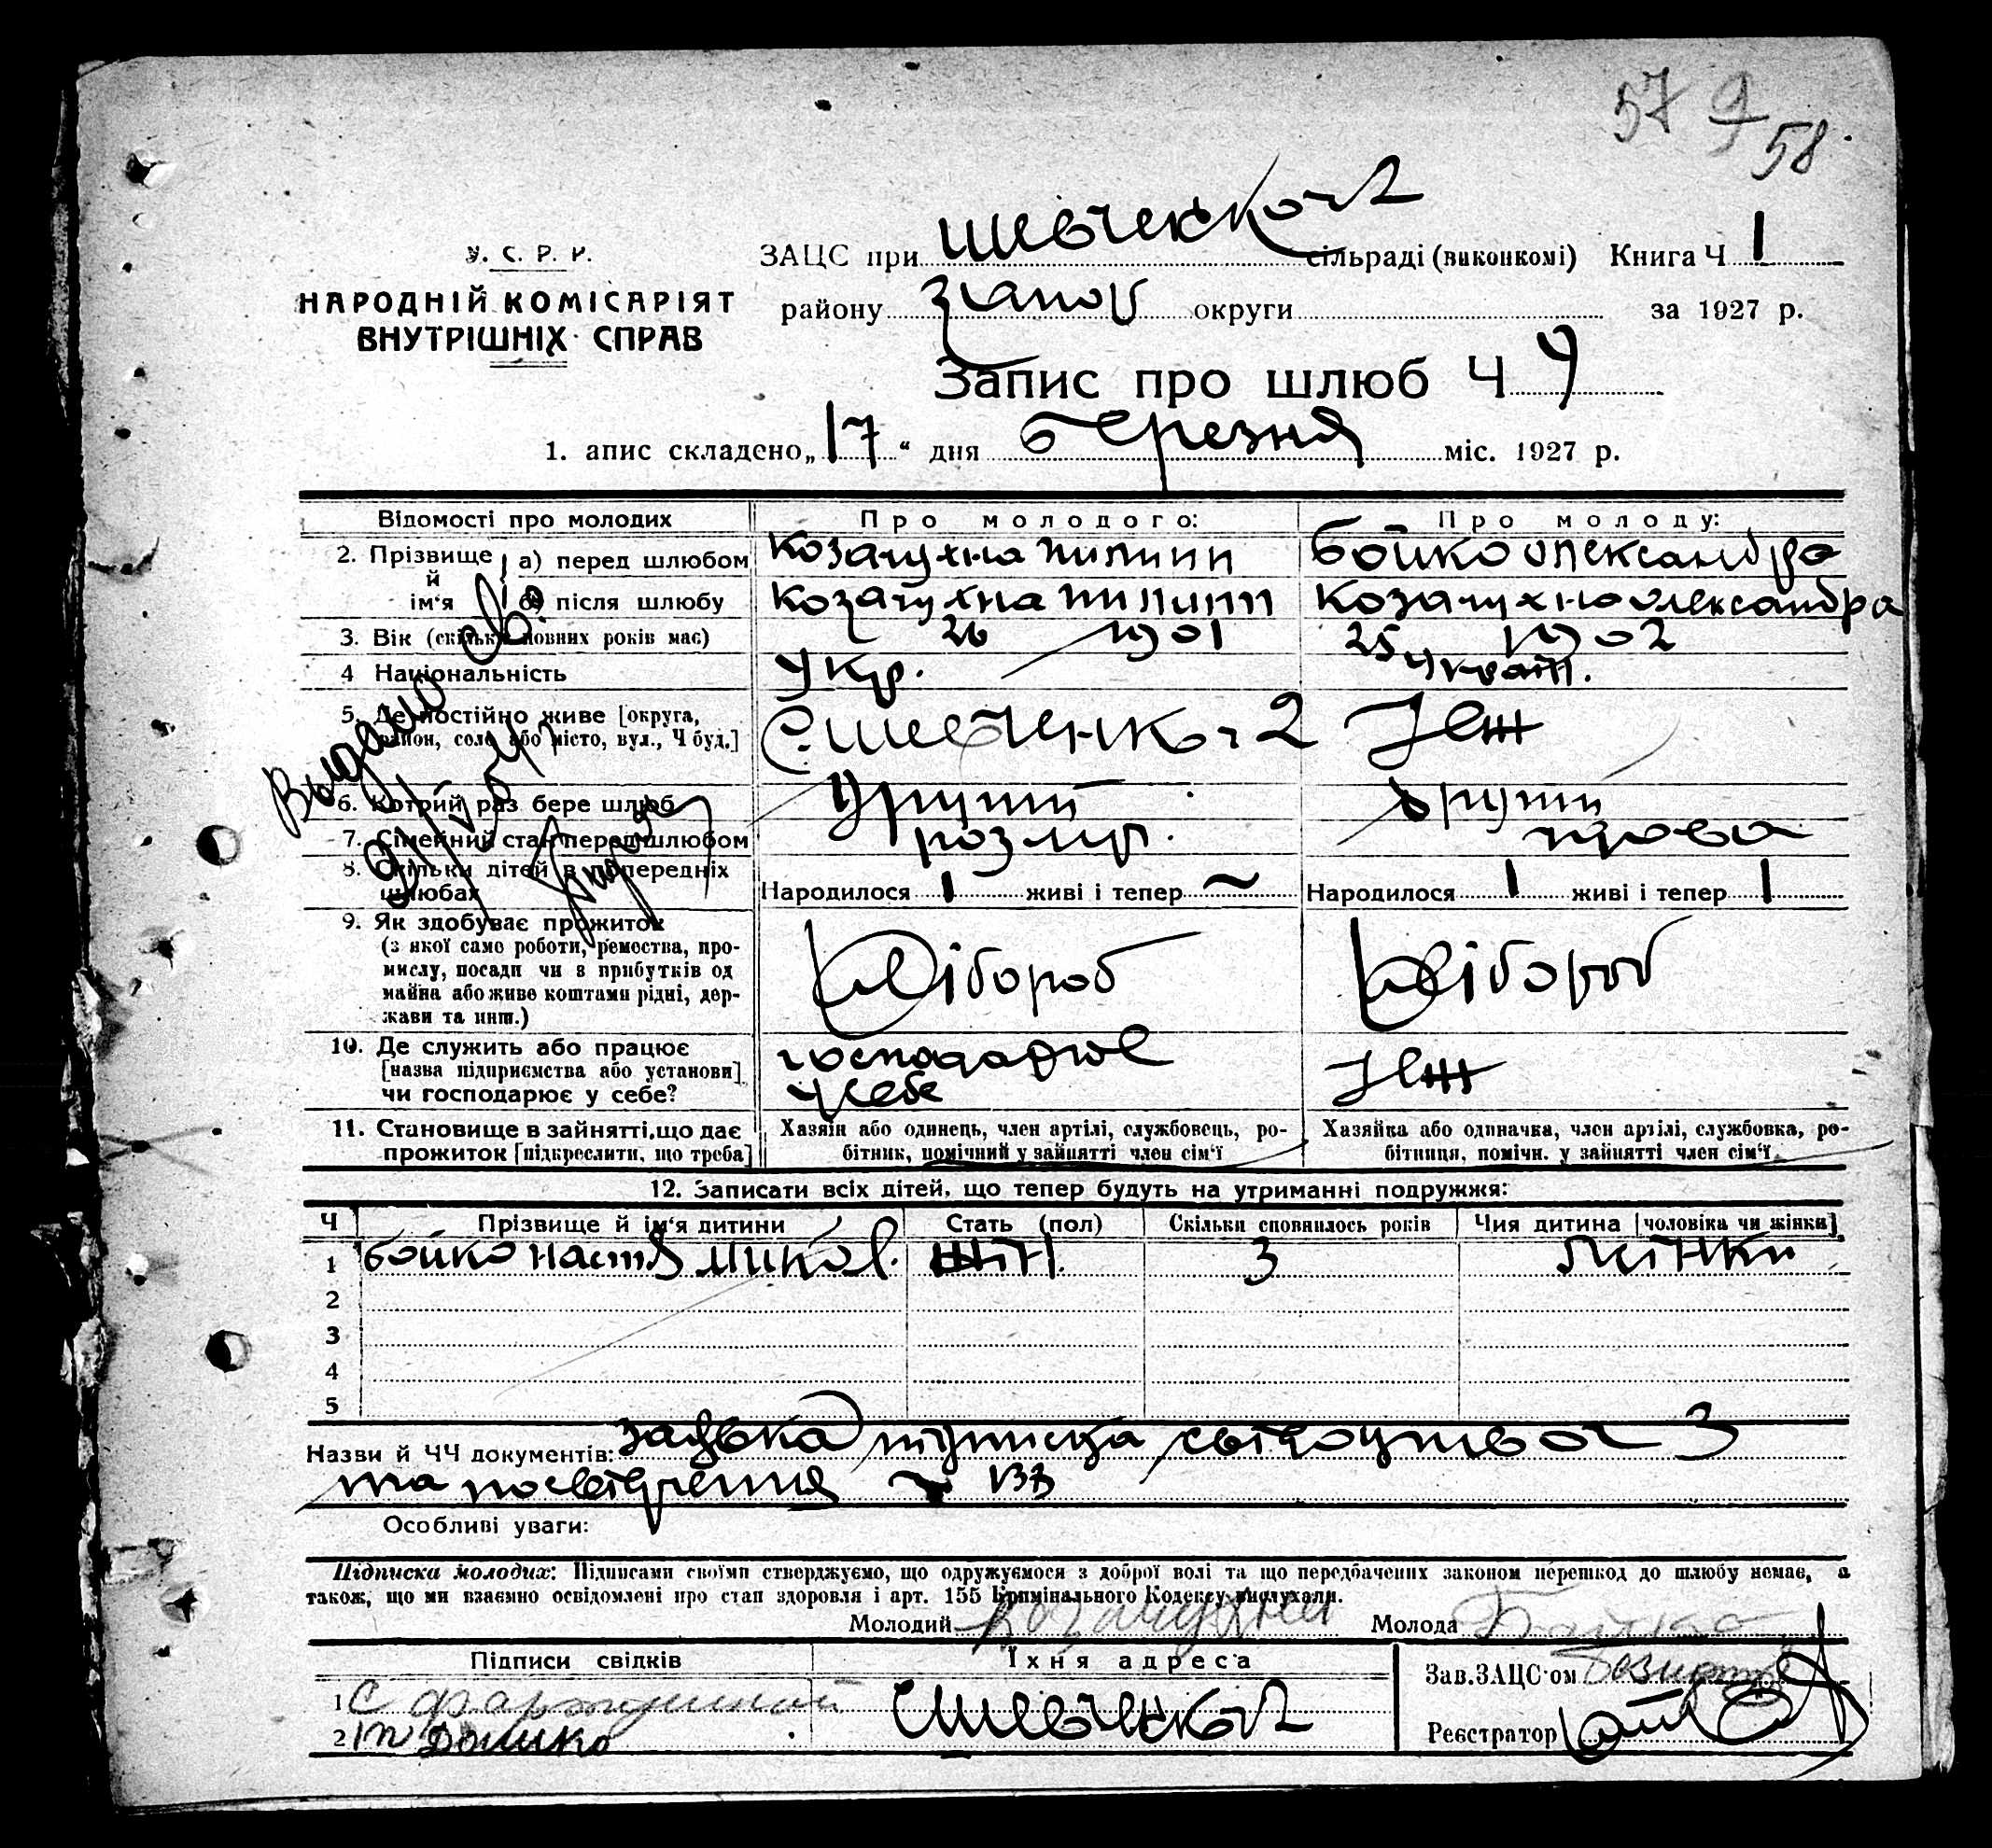 57 9 58
У. С. Р. Р.
НАРОДНІЙ КОМІСАРІЯТ
ВНУТРІШНІХ СПРАВ
ЗАЦС при Шевченко 2 сільраді (виконкомі) Книга Ч 1
району Запор округи за 1927 р.
Запис про шлюб Ч 9
1. апис складено „17“ дня березня міс. 1927 р.
Відомості про молодих Про молодого: Про молоду:
2. Прізвище й ім'я а) перед шлюбом Козачухна Пилипп Бойко Олександра
б) після шлюбу Козачухна Пилипп Козачухна Олександра
3. Вік (скільки повних років має) 26 1901 25 1902
4 Національність Укр. Украін.
5. Де постійно живе [округа, район, село або місто, вул., Ч буд.] С. Шевченко 2
6. Котрий раз бере шлюб Другий другий
7. Сімейний стан перед шлюбом
8. Скільки дітей в попередніх шлюбах Народилося 1 живі і тепер ~ Народилося 1 живі і тепер 1
9. Як здобуває прожиток
(з якої само роботи, ремества, про-
мислу, посади чи з прибутків од
майна або живе коштами рідні, дер-
жави та инш.)
Хлібороб Хлібороб
10. Де служить або працює
[назва підприємства або установи]
чи господарює у себе?
господарює
у себе
11. Становище в зайнятті, що дає
прожиток [підкреслити, що треба]
Хазяїн або одинець, член артілі, службовець, ро-
бітник, помічний у зайнятті член сім'ї
Хазяйка або одиначка, член артілі, службовка, ро-
бітниця, помічн. у зайнятті член сім'ї
12. Записати всіх дітей, що тепер будуть на утриманні подружжя:
Ч Прізвище й ім'я дитини Стать (пол) Скільки сповнилось років Чия дитина [чоловіка чи жінки]
1 Бойко Настя Микол. жін. 3 жінки
2
3
4
5
Назви й ЧЧ документів: заявка підписка свідоцтво 3
та посвідчення
Особливі уваги:
Підписка молодих: Підписами своїми стверджуємо, що одружуємося з доброї волі та що передбачених законом перешкод до шлюбу немає, а
також, що ми взаємно освідомлені про стан здоровля і арт. 155 Кримінального Кодексу вислухали.
Молодий Козачухна Молода Бойко
Підписи свідків Їхня адреса Зав. ЗАЦС'ом
1 С
2 Бойко с Шевченко 2 Реєстратор
Видано